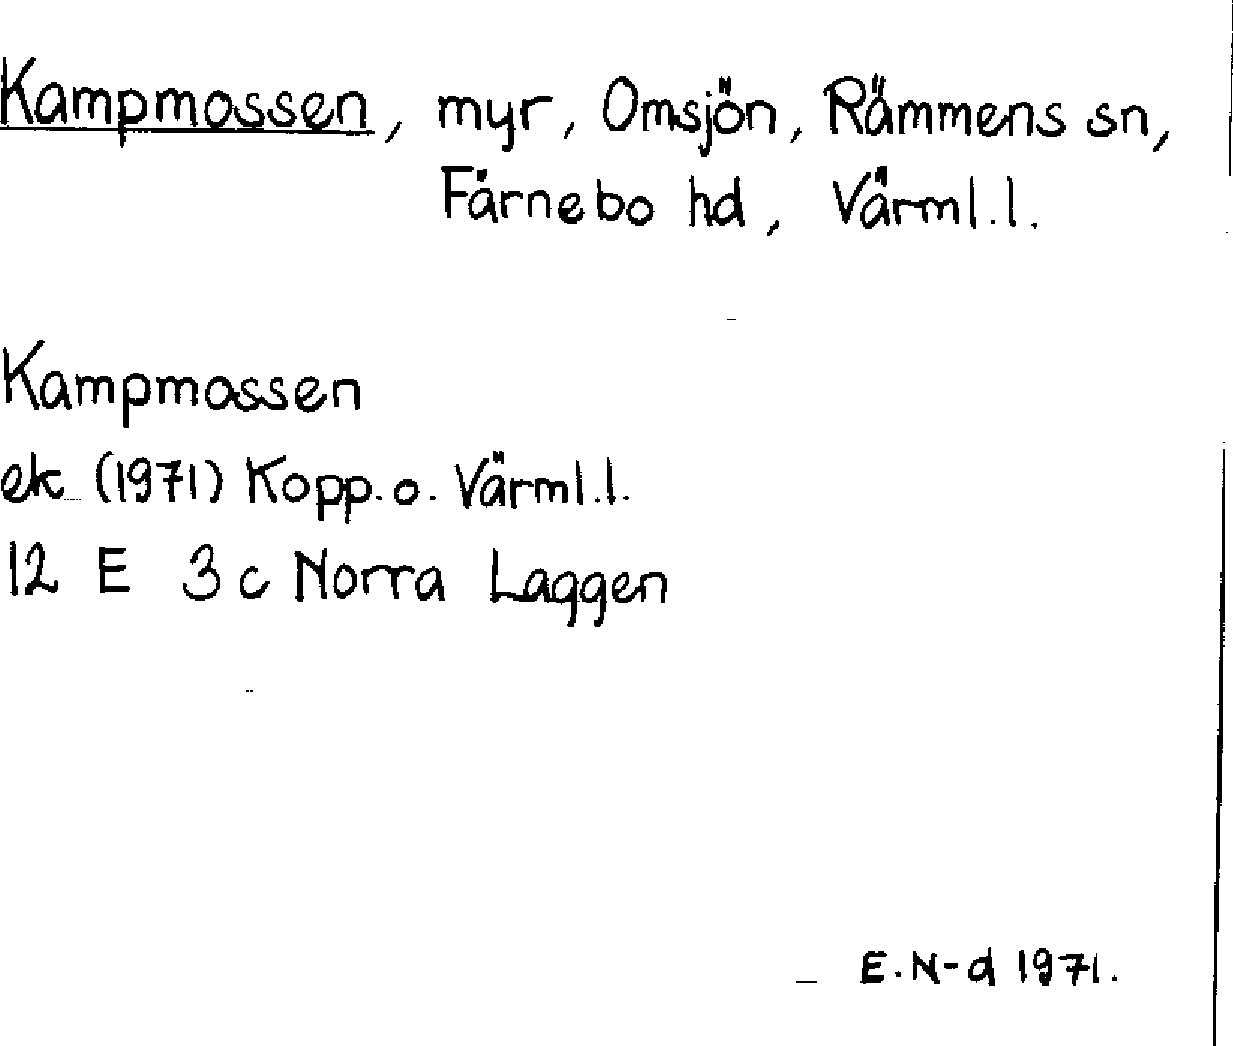 Kampmossen, myr, Omsjön, Rämmens sn,
Färnebo hd, Värml.l.
Kampmossen
ek (1971) Kopp. o. Värml.l.
12 E 3c Norra Laggen
E.N-d 1971.